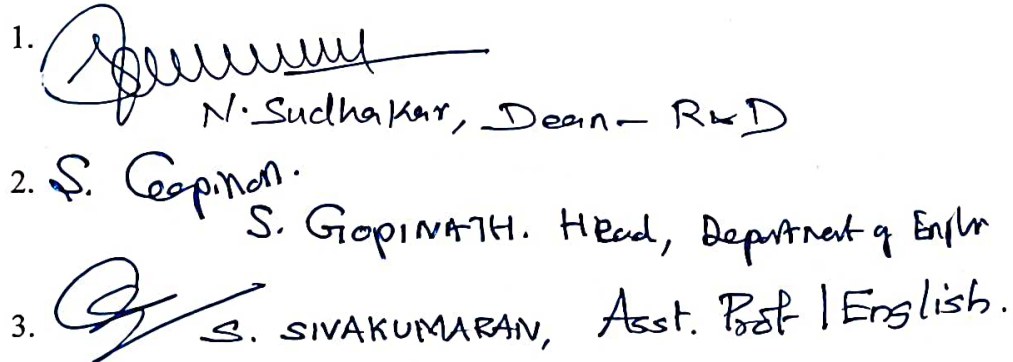 1.
N. Sudhakar, Dean - R&D
2. S. Gopinath.
S. GOPINATH. Head, Department of English
3.
S. SIVAKUMARAN, Asst. Prof | English.